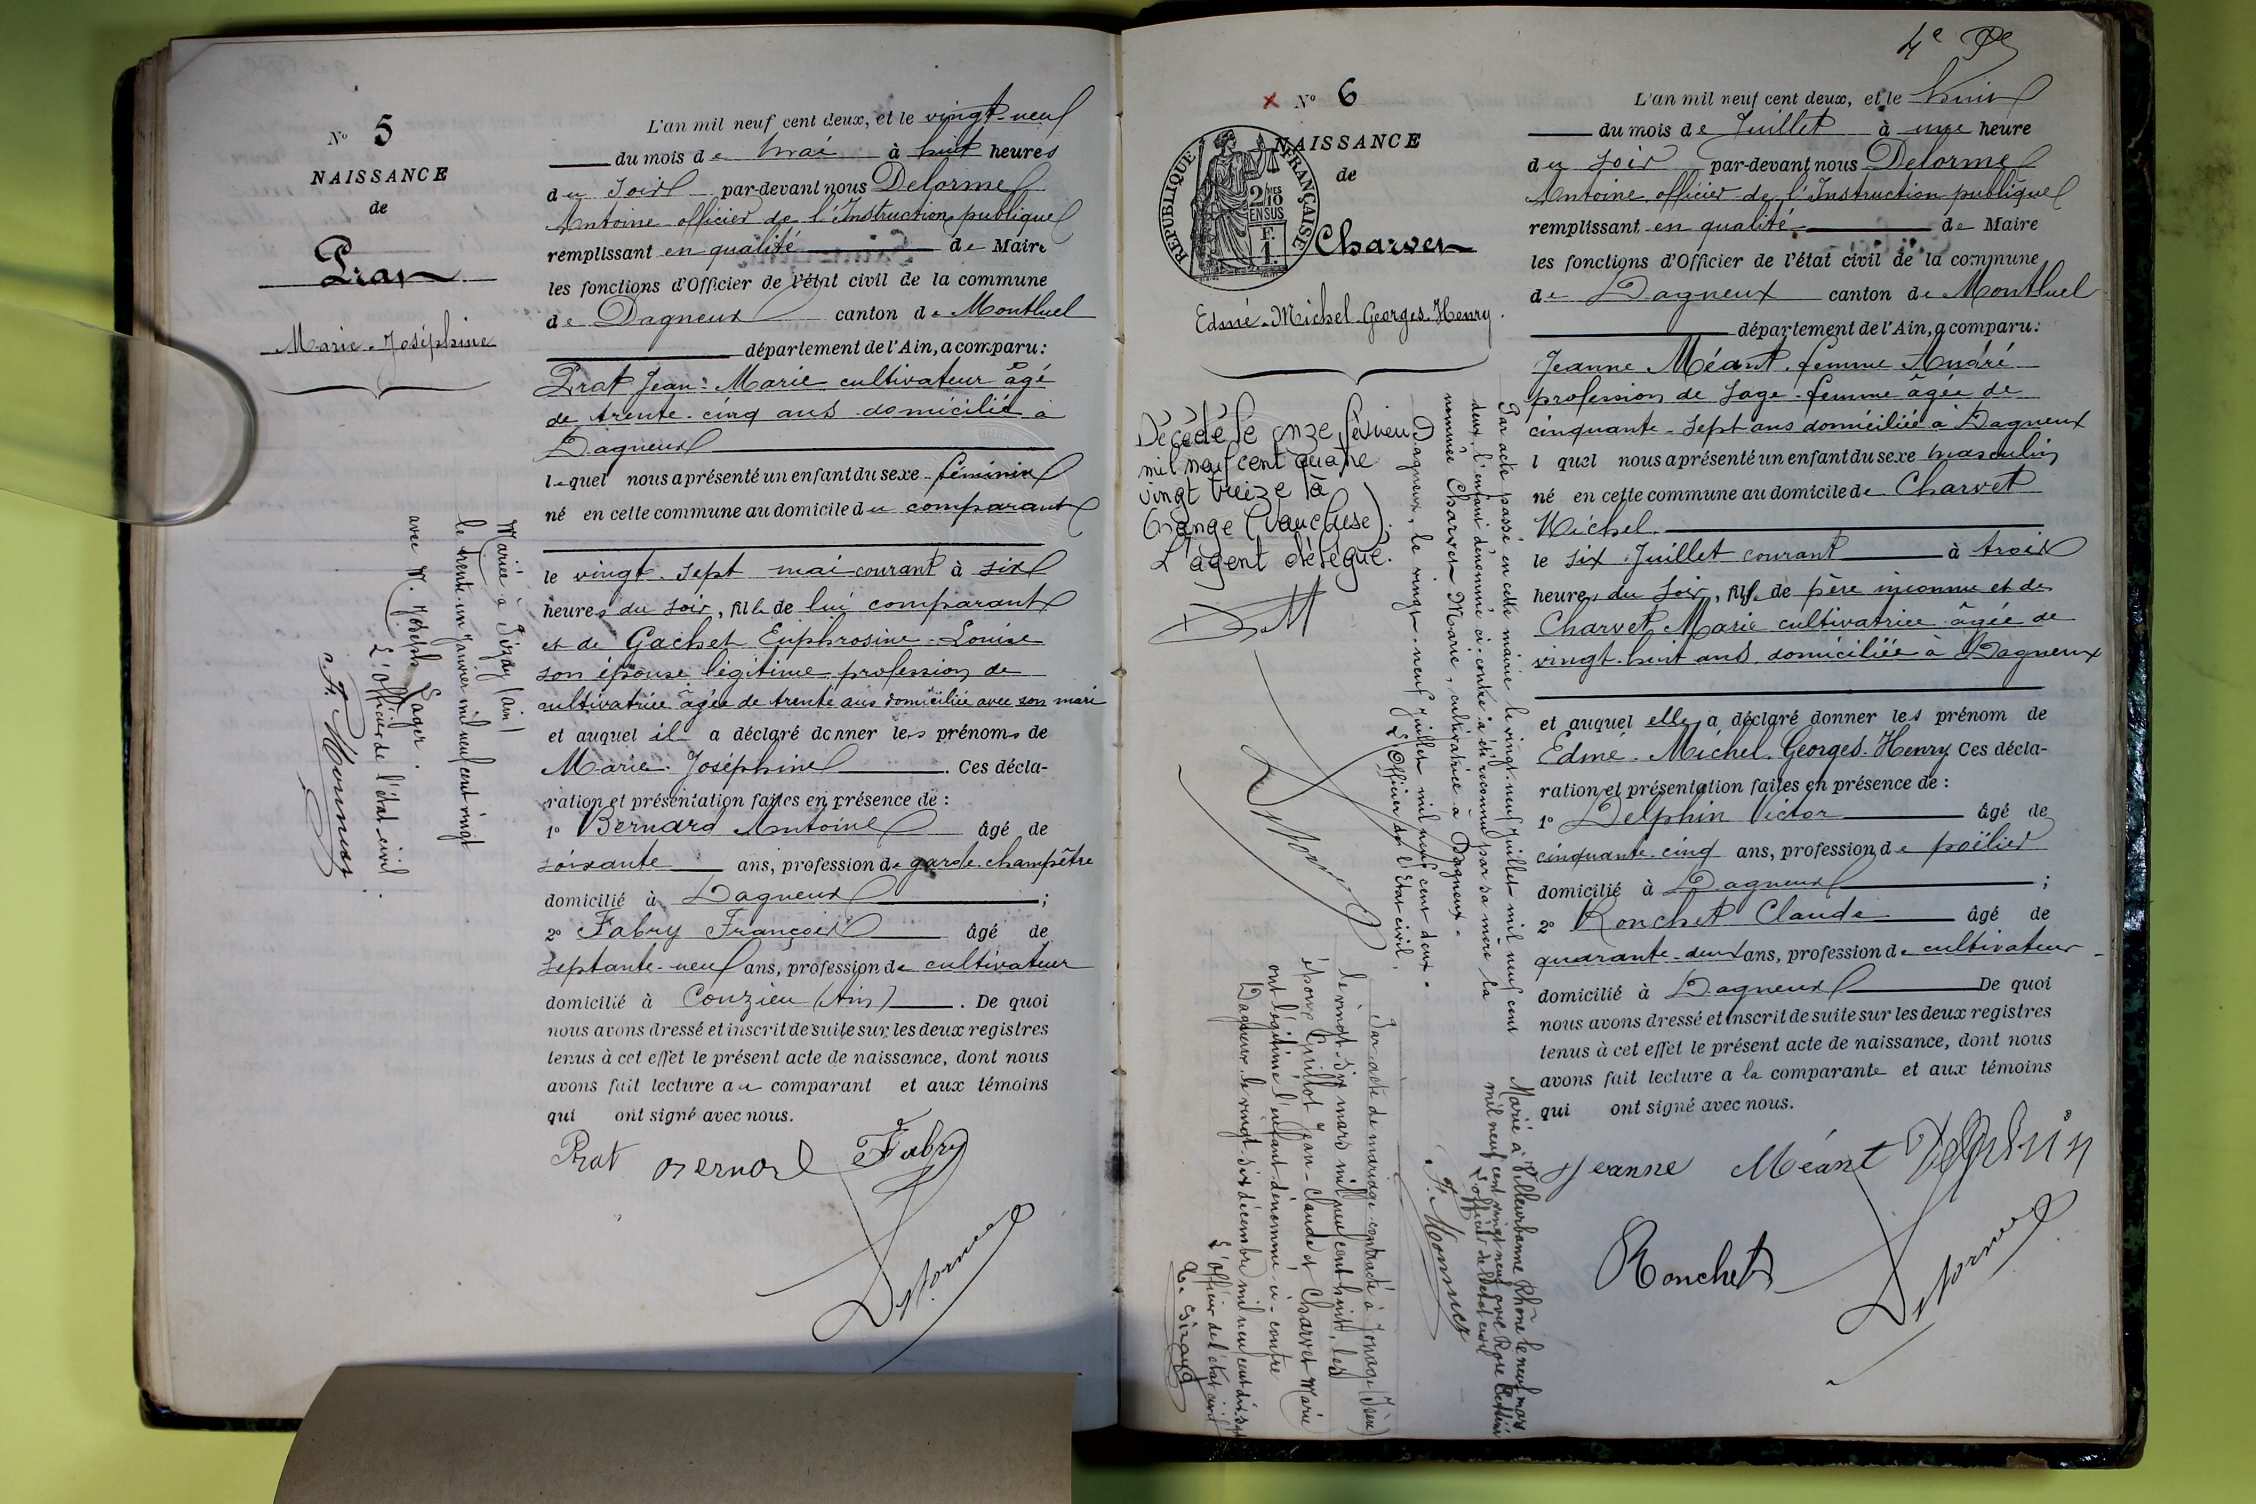 N° 5
NAISSANCE
de
Prat
Marie-Joséphine
Mariée à Pizay (Ain)
le trente-un janvier mil neuf cent vingt
avec M. Joseph Gager.
L'officier de l'état-civil.
L'an mil neuf cent deux, et le vingt-neuf
du mois de mai à huit heures
du soir par-devant nous Delorme
Antoine officier de l'Instruction publique
remplissant en qualité de Maire
les fonctions d'Officier de l'état civil de la commune
de Dagneux canton de Montluel
département de l'Ain, a comparu:
Prat Jean-Marie cultivateur âgé
de trente-cinq ans domicilié à
Dagneux
lequel nous a présenté un enfant du sexe féminin
né en cette commune au domicile du comparant
le vingt-sept mai courant à six
heures du soir, fille de lui comparant
et de Gachet Euphrosine-Louise
son épouse légitime profession de
cultivatrice âgée de trente ans domiciliée avec son mari
et auquel il a déclaré donner les prénoms de
Marie-Joséphine. Ces décla-
ration et présentation faites en présence de :
1° Bernard Antoine âgé de
soixante ans, profession de garde-champêtre
domicilié à Dagneux ;
2° Fabry François âgé de
septante-neuf ans, profession de cultivateur
domicilié à Couzieu (Ain). De quoi
nous avons dressé et inscrit de suite sur les deux registres
tenus à cet effet le présent acte de naissance, dont nous
avons fait lecture au comparant et aux témoins
qui ont signé avec nous.
Prat Bernard Fabry
Delorme
4e
N° 6
NAISSANCE
de
RÉPUBLIQUE FRANÇAISE
2/10 EN SUS
1 F.
Charvet
Edmé-Michel-Georges-Henry.
Décédé le onze février
mil neuf cent quatre
vingt treize à
Orange (Vaucluse).
L'agent délégué.
Par acte passé en cette mairie le vingt-neuf juillet mil neuf cent
deux, l'enfant dénommé ci-contre a été reconnu par sa mère la
nommée Charvet Marie, cultivatrice à Dagneux.
Dagneux, le vingt-neuf juillet mil neuf cent deux.
L'Officier de l'Etat civil,
Delorme
Par acte de mariage contracté à Jonage (Isère)
le vingt-six mars mil neuf cent huit, les
époux Guillot Jean-Claude et Charvet Marie
ont légitimé l'enfant dénommé ci-contre
Dagneux le vingt-six décembre mil neuf cent dix-sept
L'officier de l'état civil
Marié à Villeurbanne Rhône le neuf mars
mil neuf cent vingt neuf avec Rose
L'officier de l'état civil
L'an mil neuf cent deux, et le huit
du mois de Juillet à une heure
du soir par-devant nous Delorme
Antoine officier de l'Instruction publique
remplissant en qualité de Maire
les fonctions d'Officier de l'état civil de la commune
de Dagneux canton de Montluel
département de l'Ain, a comparu:
Jeanne Méant femme André
profession de sage-femme âgée de
cinquante-sept ans domiciliée à Dagneux
l quel nous a présenté un enfant du sexe masculin
né en cette commune au domicile de Charvet
Michel.
le six Juillet courant à trois
heures du soir, fils de père inconnu et de
Charvet Marie cultivatrice âgée de
vingt-huit ans domiciliée à Dagneux
et auquel elle a déclaré donner les prénom de
Edmé-Michel-Georges-Henry. Ces décla-
ration et présentation faites en présence de :
1° Delphin Victor âgé de
cinquante-cinq ans, profession de poëlier
domicilié à Dagneux ;
2° Ronchet Claude âgé de
quarante-deux ans, profession de cultivateur
domicilié à Dagneux De quoi
nous avons dressé et inscrit de suite sur les deux registres
tenus à cet effet le présent acte de naissance, dont nous
avons fait lecture a la comparante et aux témoins
qui ont signé avec nous.
Jeanne Méant Delphin
Ronchet
Delorme